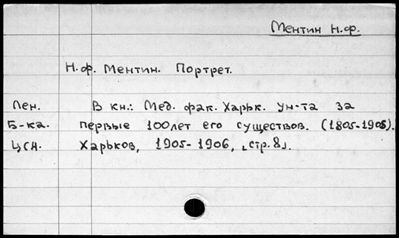 Ментин Н.Ф.
Н.Ф. Ментин. Портрет.
Лен. В кн.: Мед. фак. Харьк. ун-та за
Б-ка. первые 100 лет его существов. (1805-1905).
ЦСА. Харьков, 1905-1906, [стр. 8].